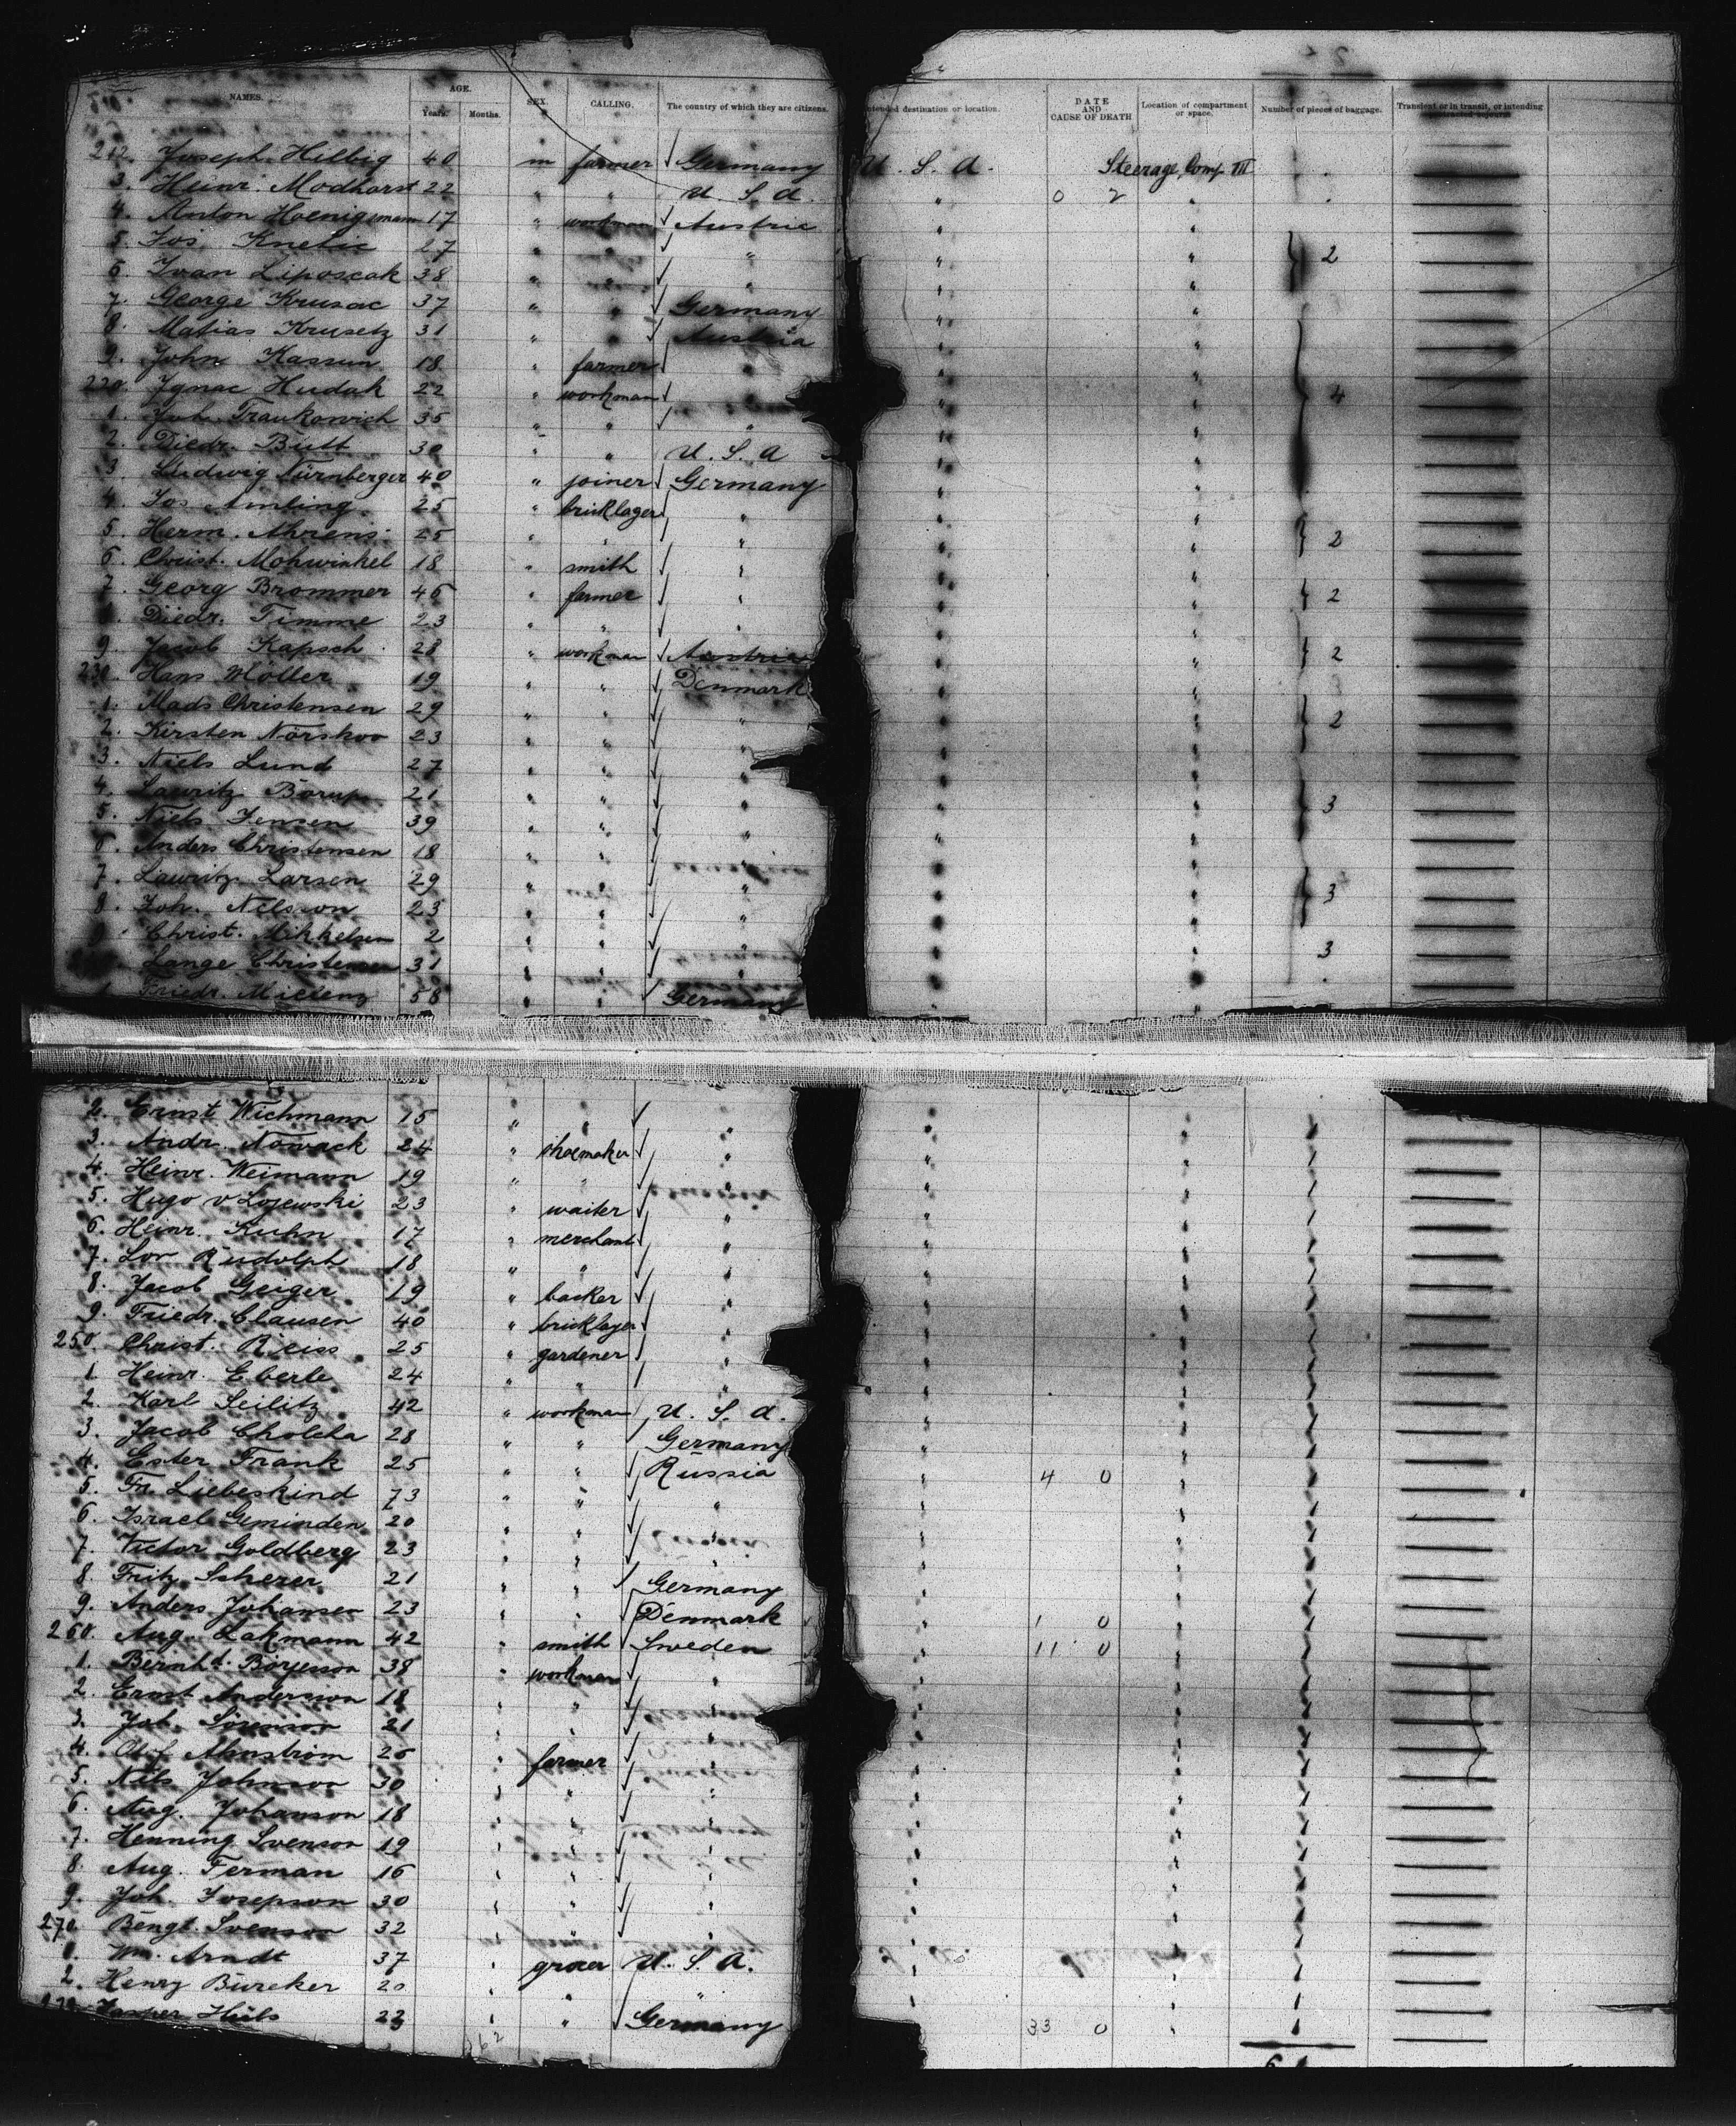 NAMES. AGE. Years. Months. SEX. CALLING. The country of which they are citizens. Intended destination or location. DATE AND CAUSE OF DEATH Location of compartment or space. Number of pieces of baggage. Transient or in transit, or intending
212. Joseph Helbig 40 m farmer √ Germany U. S. A. Steerage, Comp. III
3. Heinr. Modhorst 22 " " U. S. A. " 0 2 "
4. Anton Hoenigsmann 17 " workman √ Austria " "
5. Jos. Knetic 27 " " √ " " " 2
6. Ivan Liposcak 38 " " √ " " "
7. George Krusac 37 " " √ Germany " "
8. Matias Krusetz 31 " " √ Austria " "
9. John Kassun 18 " farmer √ " " "
220. Ignac Hudak 22 " workman √ " " " 4
1. Joh. Traukowich 35 " " √ " " "
2. Diedr. Bütt 30 " " U. S. A " "
3. Ludwig Nürnberger 40 " joiner √ Germany " "
4. Jos. Amling 25 " bricklager √ " " "
5. Herm. Ahrens 25 " " √ " " " 2
6. Christ. Mohwinkel 18 " smith √ " " "
7. Georg Brommer 46 " farmer √ " " " 2
8. Diedr. Timme 23 " " √ " " "
9. Jacob Kapsch 28 " workman √ Austria " " 2
230. Hans Möller 19 " " √ Denmark " "
1. Mads Christensen 29 " " √ " " " 2
2. Kirsten Nörskov 23 " " √ " " "
3. Niels Lund 27 " " √ " " "
4. Lauritz Börup 21 " " √ " " " 3
5. Niels Jensen 39 " " √ " " "
6. Anders Christensen 18 " " √ " " "
7. Lauritz Larsen 29 " " √ " " " 3
8. Joh. Nelsson 23 " " √ " " "
9. Christ. Mikkelsen 2 " " √ " " " 3
Lange Christensen 31 " " √ " " "
1. Friedr. Mielenz 58 " " √ Germany " "
2. Ernst Wichmann 15 " " √ " " " 1
3. Andr. Nowack 24 " shoemaker √ " " " 1
4. Heinr. Weimann 19 " " √ " " " 1
5. Hugo v Lojewski 23 " waiter √ " " " 1
6. Heinr. Kuhn 17 " merchant √ " " " 1
7. Lor Rudolph 18 " " √ " " " 1
8. Jacob Geiger 19 " backer √ " " " 1
9. Friedr. Clausen 40 " bricklager √ " " " 1
250. Christ. Reiss 25 " gardener √ " " " 1
1. Heinr. Eberle 24 " " √ " " " 1
2. Karl Seilitz 42 " workman √ U. S. A. " " 1
3. Jacob Cholcha 28 " " √ Germany " " 1
4. Ester Frank 25 " " √ Russia " 4 0 " 1
5. Fr. Liebeskind 73 " " √ " " " 1
6. Israel Geminden 20 " " √ " " " 1
7. Victor Goldberg 23 " " √ " " " 1
8. Fritz Scherer 21 " " √ Germany " " 1
9. Anders Johansen 23 " " √ Denmark " 1 0 " 1
260. Aug. Lakmann 42 " smith √ Sweden " 11 0 " 1
1. Bernhd. Börjesson 38 " workman √ " " " 1
2. Ernst Andersson 18 " " √ " " " 1
3. Joh. Sörenson 21 " " √ " " " 1
4. Olof Almström 26 " farmer √ " " " 1
5. Nils Johnson 30 " " √ " " " 1
6. Aug. Johanson 18 " " √ " " " 1
7. Henning Svenson 19 " " √ " " " 1
8. Aug. Ferman 16 " " √ " " " 1
9. Joh. Josepson 30 " " √ " " " 1
270. Bengt Svenson 32 " " √ " " " 1
1. Wm. Arndt 37 " grocer U. S. A. " " 1
2. Henry Büreker 20 " " " " " 1
273. Jasper Hüls 23 " " √ Germany 33 0 " 1